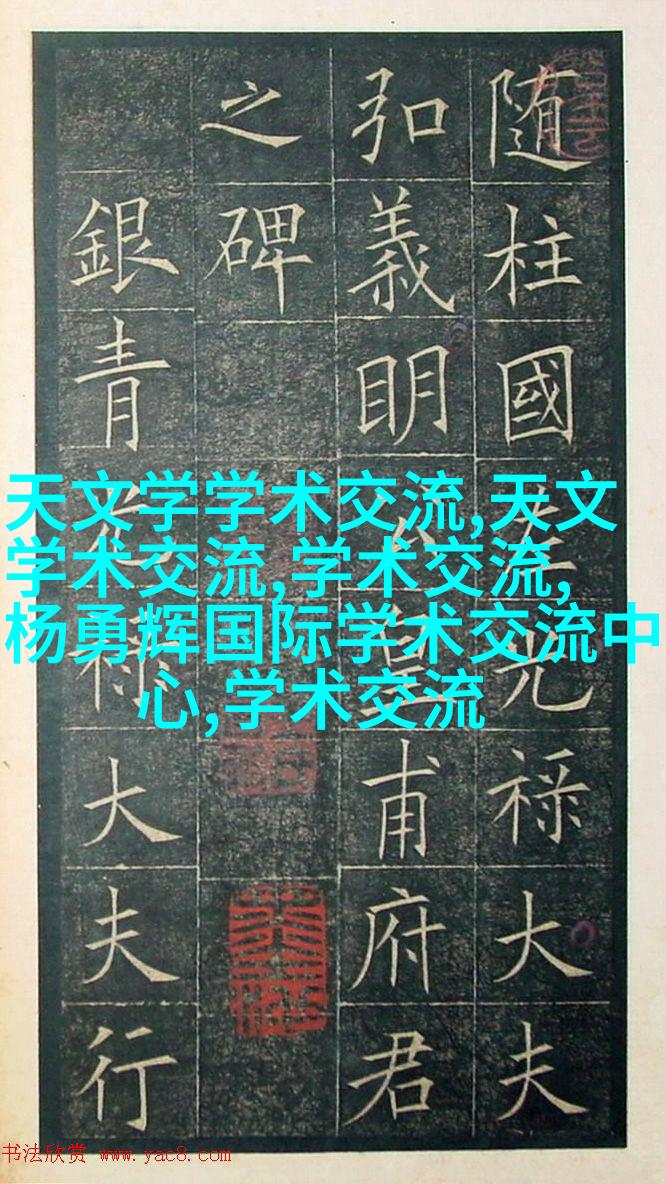 随柱國左光禄大夫
弘義明公皇甫府君
之碑
銀青光禄大夫行
天文学学术交流,天文
学术交流,学术交流,
杨勇辉国际学术交流中
心,学术交流
书法欣赏 www.yac8.com